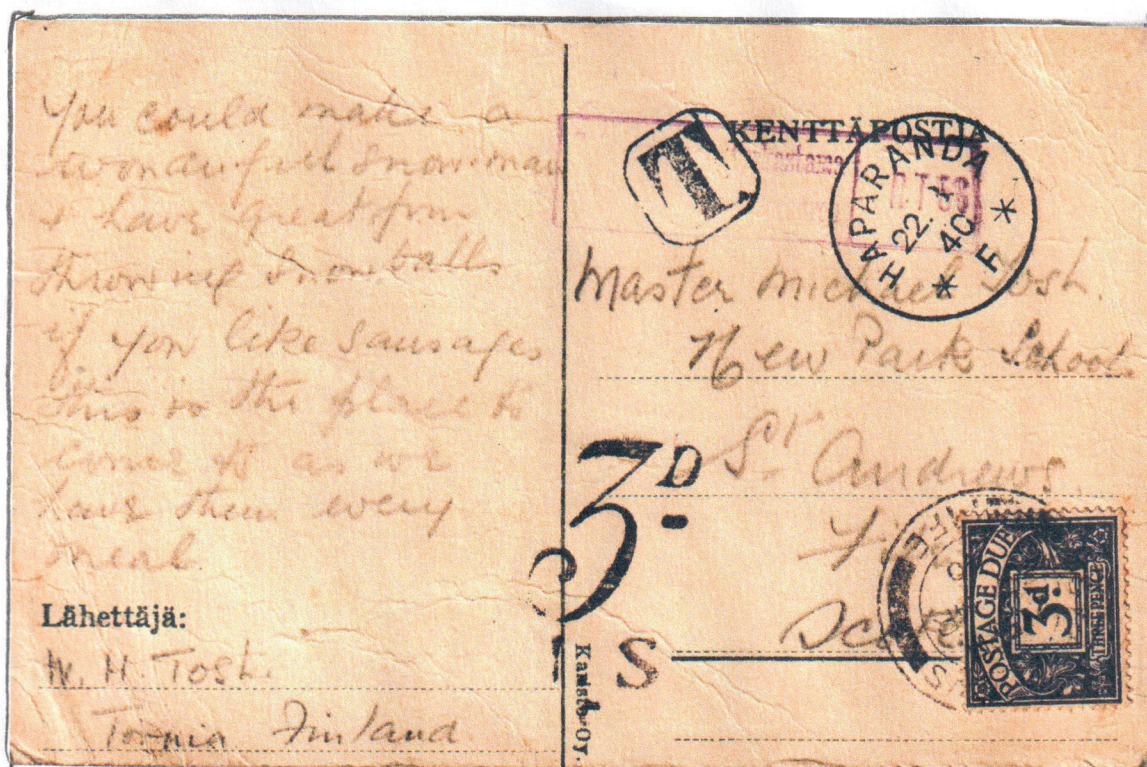 You could make a
wonderful snowman
& have great fun
throwing snowballs
if you like sausages
this is the place to
come to as we
have them every
meal
Lähettäjä:
W. H. Tosh.
Tornia Finland
KENTTÄPOSTIA
T
HAPARANDA
22. 4
40
* F *
Master Michael Tosh.
New Park School
St Andrews.
Scot
3D
S
Kaisto Oy.
FIFE
POSTAGE DUE
3d.
THREE PENCE